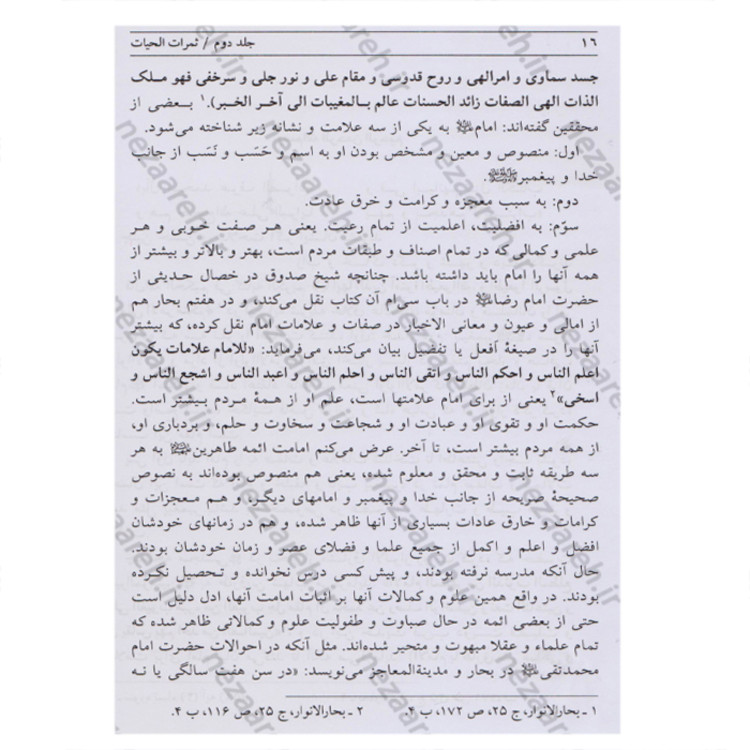 ۱۶ جلد دوم / ثمرات الحیات
جسد سماوی و امرالهی و روح قدوسی و مقام علی و نور جلی و سرخفی فهو ملک
الذات الهی الصفات زائد الحسنات عالم بالمغیبات الی آخر الخبر).۱ بعضی از
محققین گفته‌اند: امام به یکی از سه علامت و نشانه زیر شناخته می‌شود.
اول: منصوص و معین و مشخص بودن او به اسم و حَسَب و نَسَب از جانب
خدا و پیغمبر.
دوم: به سبب معجزه و کرامت و خرق عادت.
سوّم: به افضلیت، اعلمیت از تمام رعیت. یعنی هر صفت خوبی و هر
علمی و کمالی که در تمام اصناف و طبقات مردم است، بهتر و بالاتر و بیشتر از
همه آنها را امام باید داشته باشد. چنانچه شیخ صدوق در خصال حدیثی از
حضرت امام رضا در باب سی‌اُم آن کتاب نقل می‌کند، و در هفتم بحار هم
از امالی و عیون و معانی الاخبار در صفات و علامات امام نقل کرده، که بیشتر
آنها را در صیغهٔ اَفعل یا تفضیل بیان می‌کند، می‌فرماید: «للامام علامات یکون
اعلم الناس و احکم الناس و اتقی الناس و احلم الناس و اعبد الناس و اشجع الناس و
اسخی»۲ یعنی از برای امام علامتها است، علم او از همهٔ مردم بیشتر است.
حکمت او و تقوی او و عبادت او و شجاعت و سخاوت و حلم، و بردباری او،
از همه مردم بیشتر است، تا آخر. عرض می‌کنم امامت ائمه طاهرین به هر
سه طریقه ثابت و محقق و معلوم شده، یعنی هم منصوص بوده‌اند به نصوص
صحیحهٔ صریحه از جانب خدا و پیغمبر و امامهای دیگر، و هم معجزات و
کرامات و خارق عادات بسیاری از آنها ظاهر شده، و هم در زمانهای خودشان
افضل و اعلم و اکمل از جمیع علما و فضلای عصر و زمان خودشان بودند.
حال آنکه مدرسه نرفته بودند، و پیش کسی درس نخوانده و تحصیل نکرده
بودند. در واقع همین علوم و کمالات آنها بر اثبات امامت آنها، ادل دلیل است
حتی از بعضی ائمه در حال صباوت و طفولیت علوم و کمالاتی ظاهر شده که
تمام علماء و عقلا مبهوت و متحیر شده‌اند. مثل آنکه در احوالات حضرت امام
محمدتقی در بحار و مدینةالمعاجز می‌نویسد: «در سن هفت سالگی یا نه
۱ ـ بحارالانوار، ج ۲۵، ص ۱۷۲، ب ۴. ۲ ـ بحارالانوار، ج ۲۵، ص ۱۱۶، ب ۴.
nezaareh.ir